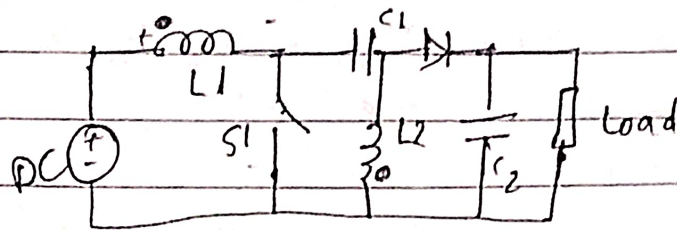 C1
+
L1
S1
L2
+
-
DC
C2
Load